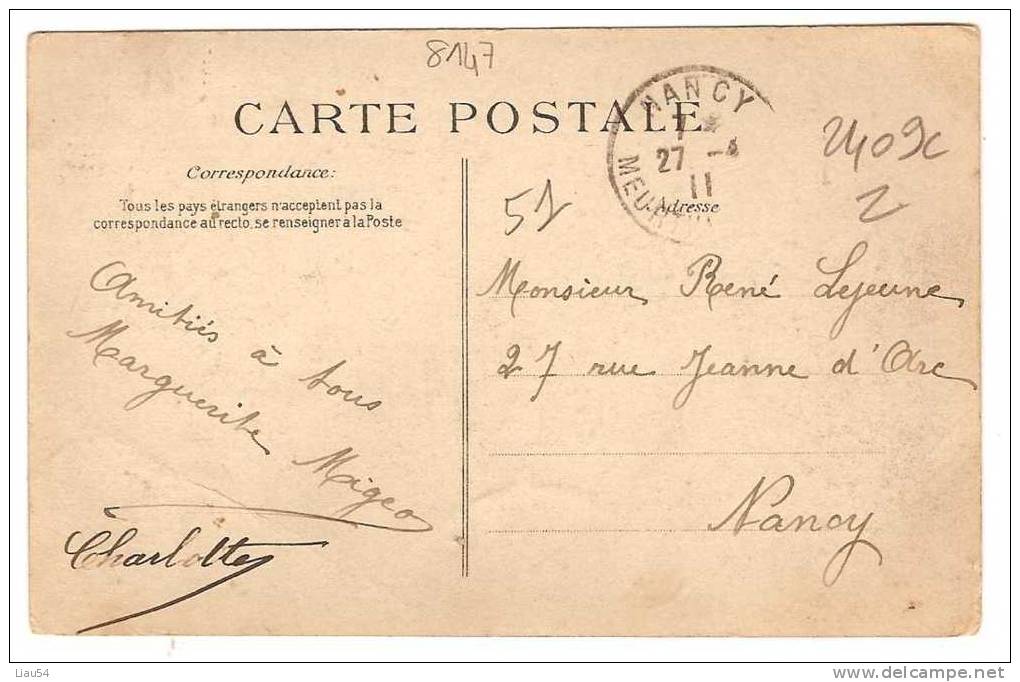 8147
CARTE POSTALE
NANCY
27 - 11
MEURTHE
Correspondance:
Tous les pays étrangers n'acceptent pas la
correspondance au recto, se renseigner à la Poste
Adresse
Amitiés à tous
Marguerite Migeo
Charlotte
Monsieur René Lejeune
27 rue Jeanne d'Arc
Nancy
Liau54
www.delcampe.net